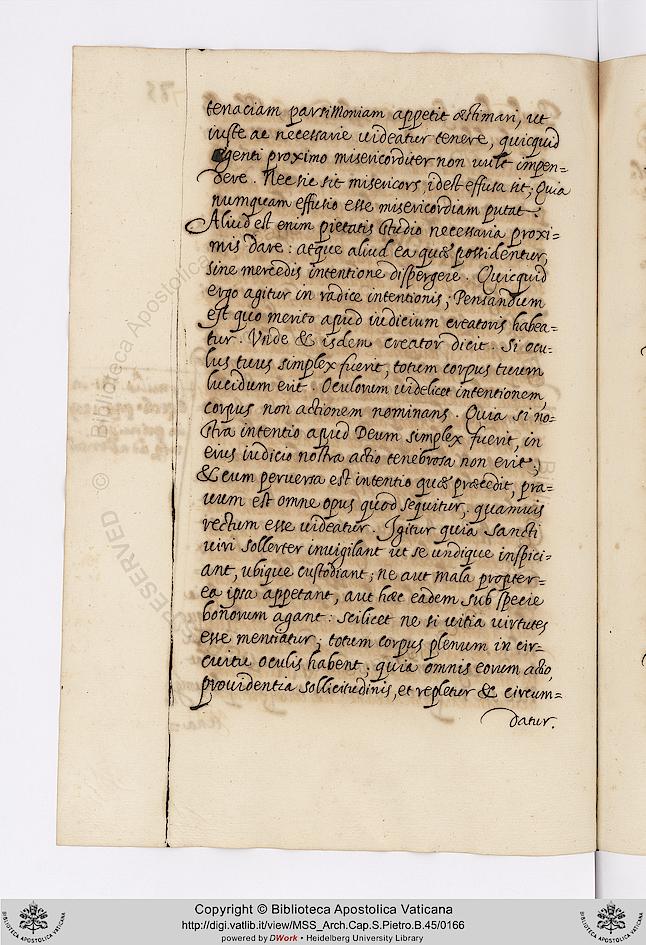 tenaciam parsimoniam appetit æstimari, ut
iuste ac necessarie uideatur tenere, quicquid
egenti proximo misericorditer non uult impen=
dere. Nec sic sit misericors, idest effusa sit; Quia
numquam effusio esse misericordiam putat.
Aliud est enim pietatis studio necessaria proxi=
mis dare: atque aliud ea quæ possidentur,
sine mercedis intentione dispergere. Quicquid
ergo agitur in radice intentionis; Pensandum
est quo merito apud iudicium creatoris habea=
tur. Vnde & isdem creator dicit. Si ocu=
lus tuus simplex fuerit, totum corpus tuum
lucidum erit. Oculorum uidelicet intentionem,
corpus non actionem nominans. Quia si no=
stra intentio apud Deum simplex fuerit, in
eius iudicio nostra actio tenebrosa non erit;
& cum peruersa est intentio quæ præcedit, pra=
uum est omne opus quod sequitur, quamuis
rectum esse uideatur. Igitur quia sancti
uiri sollerter inuigilant ut se undique inspici=
ant, ubique custodiant; ne aut mala propter=
ea ipsa appetant, aut hæc eadem sub specie
bonorum agant: scilicet ne si uitia uirtutes
esse mentiatur; totum corpus plenum in cir=
cuitu oculis habent. quia omnis eorum actio,
prouidentia sollicitudinis, et repletur & circum=
datur.
© Biblioteca Apostolica
RESERVED
Copyright © Biblioteca Apostolica Vaticana
http://digi.vatlib.it/view/MSS_Arch.Cap.S.Pietro.B.45/0166
powered by DWork • Heidelberg University Library